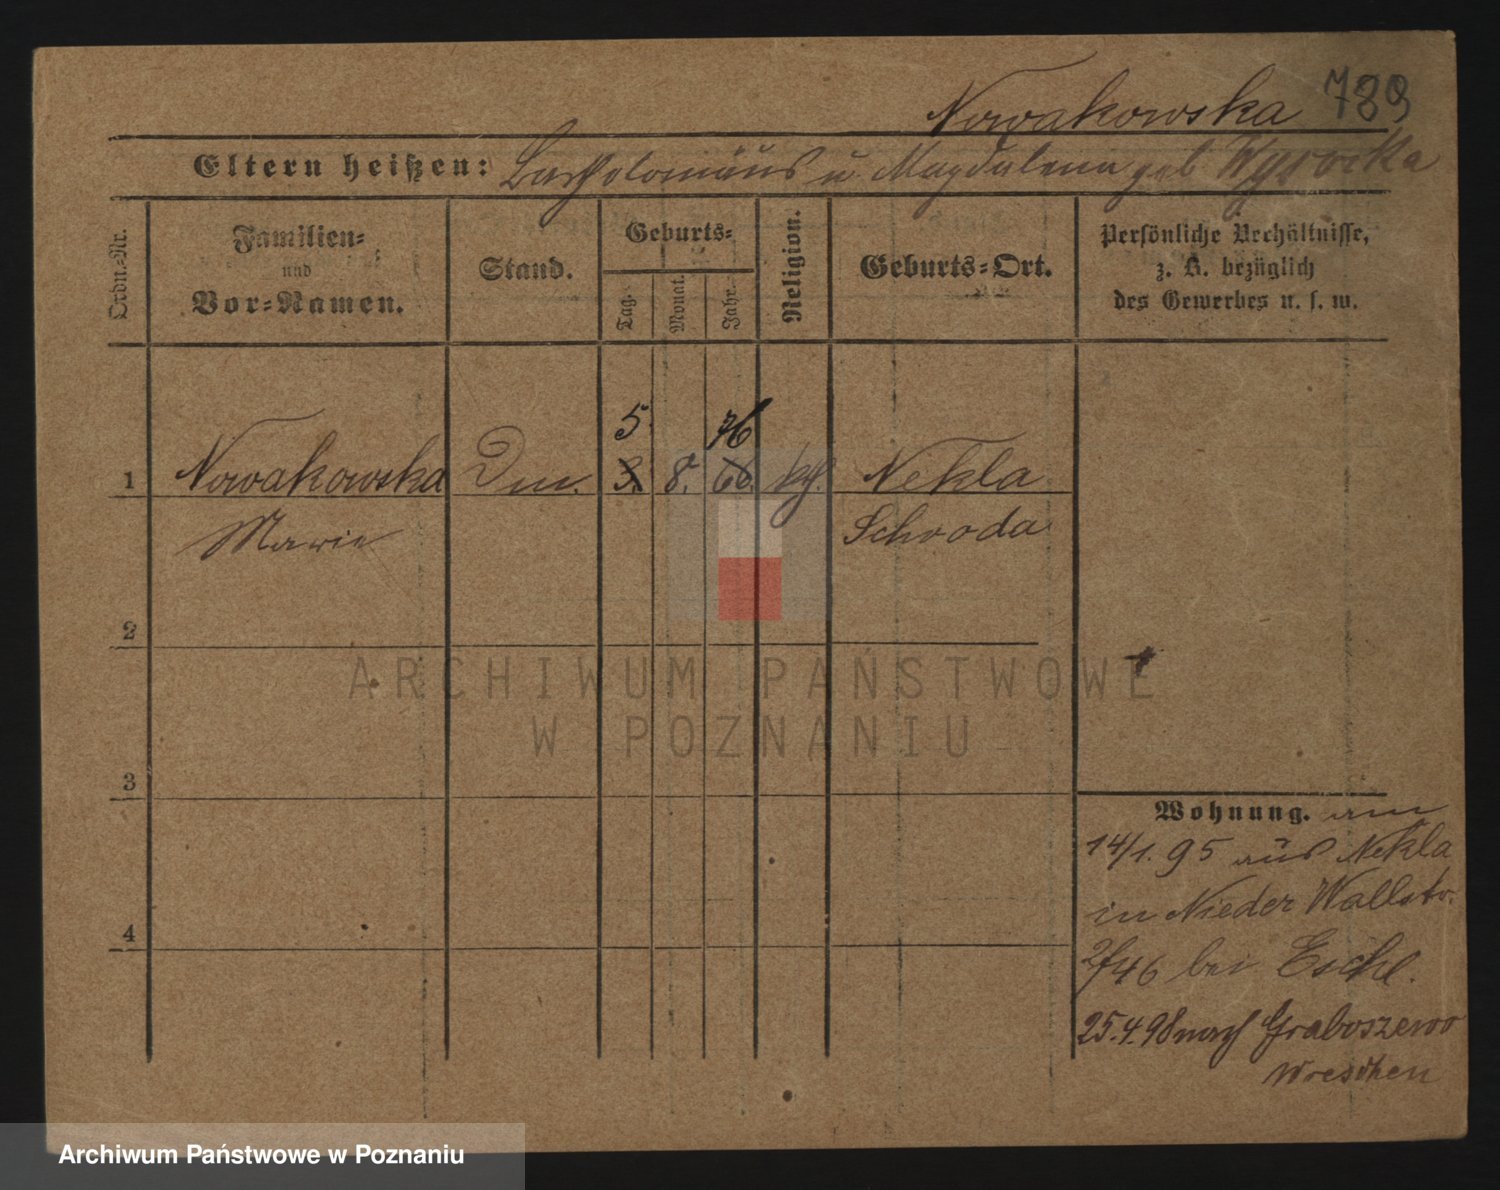 Nowakowska 789
Eltern heißen: Bartholomäus u. Magdalena geb Wysocka
Ordn.-Nr.
Familien-
und
Vor-Namen.
Stand.
Geburts-
Tag.
Monat.
Jahr.
Religion.
Geburts-Ort.
Persönliche Verhältnisse,
z. B. bezüglich
des Gewerbes u. s. w.
5. 76
1 Nowakowska 3. 8. 66. kth. Nekla
Marie Schroda
2
3
4
Wohnung. am
14/1. 95 aus Nekla
in Nieder Wallstr.
2/46 bei
25.4.98 nach Graboszewo
Wreschen
ARCHIWUM PAŃSTWOWE
W POZNANIU
Archiwum Państwowe w Poznaniu